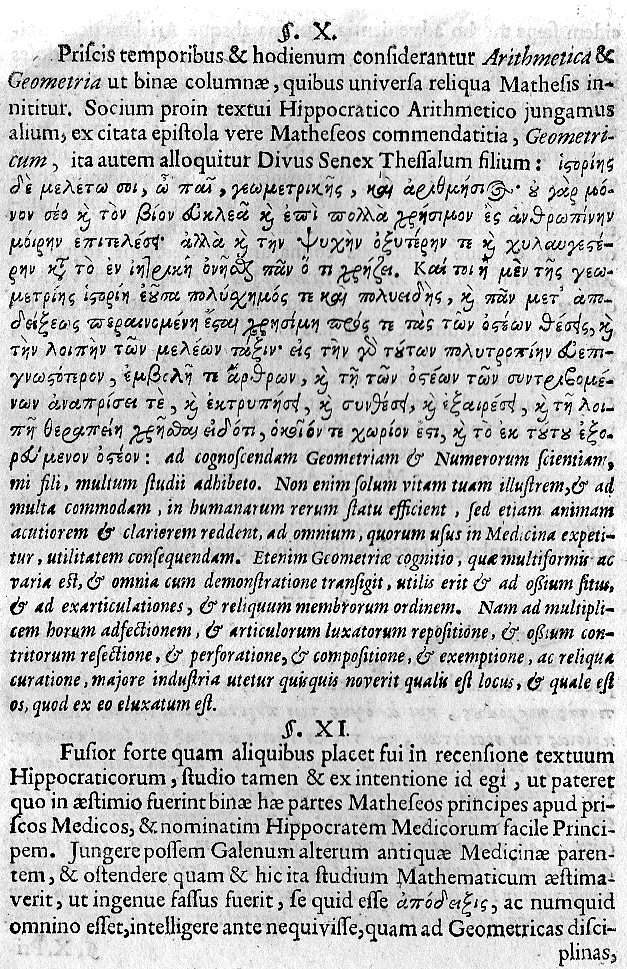 §. X.
Priscis temporibus & hodienum considerantur Arithmetica &
Geometria ut binæ columnæ, quibus universa reliqua Mathesis in-
nititur. Socium proin textui Hippocratico Arithmetico jungamus
alium, ex citata epistola vere Matheseos commendatitia, Geometri-
cum, ita autem alloquitur Divus Senex Thessalum filium: ἱϛορίης
δὲ μελέτω σοι, ὦ παῖ, γεωμετρικῆς, καὶ ἀριθμήσιος· ὐ γὰρ μό-
νον σέο κ̀ τὸν βίον ἐυκλεᾶ κ̀ ἐπὶ πολλὰ χρήσιμον ἐς ἀνθρωπίνην
μοίρην ἐπιτελέσει· ἀλλὰ κ̀ την ψυχὴν ὀξυτέρην τε κ̀ τηλαυγεϛέ-
ρην πρὸς τὸ ἐν ἰητρικῇ ὀνήσει πᾶν ὅ τι χρήζει. Καί τοι ἡ μὲν τῆς γεω-
μετρίης ἱϛορίη ἐοῦσα πολύσχημός τε καὶ πολυειδὴς, κ̀ πᾶν μετ᾽ ἀπο-
δείξεως περαινομένη ἔϛαι χρησίμη πρός τε τὰς τῶν ὀϛέων θέσιας, κ̀
τὴν λοιπὴν τῶν μελέων τάξιν· εἰς τὴν γὸ τύτων πολυτροπίην ἐυεπι-
γνωϛότερον, ἐμβολῇ τε ἄρθρων, κ̀ τῇ τῶν ὀϛέων τῶν συντριβομέ-
νων ἀναπρίσει τὲ, κ̀ ἐκτρυπήσει, κ̀ συνθέσει, κ̀ ἐξαιρέσει, κ̀ τῇ λοι-
πῇ θεραπείῃ χρῆσθαι εἰδότι, ὁκοῖόν τε χωρίον ἐϛι, κ̀ τὸ ἐκ τύτυ ἐξο-
ρυόμενον ὀϛέον: ad cognoscendam Geometriam & Numerorum scientiam,
mi fili, multum studii adhibeto. Non enim solum vitam tuam illustrem, & ad
multa commodam, in humanarum rerum statu efficient, sed etiam animam
acutiorem & clarierem reddent, ad omnium, quorum usus in Medicina expeti-
tur, utilitatem consequendam. Etenim Geometriæ cognitio, quæ multiformis ac
varia est, & omnia cum demonstratione transigit, utilis erit & ad ossium situs,
& ad exarticulationes, & reliquum membrorum ordinem. Nam ad multipli-
cem horum adfectionem, & articulorum luxatorum repositione, & ossium con-
tritorum resectione, & perforatione, & compositione, & exemptione, ac reliqua
curatione, majore industria utetur quisquis noverit qualis est locus, & quale est
os, quod ex eo eluxatum est.
§. XI.
Fusior forte quam aliquibus placet fui in recensione textuum
Hippocraticorum, studio tamen & ex intentione id egi, ut pateret
quo in æstimio fuerint binæ hæ partes Matheseos principes apud pri-
scos Medicos, & nominatim Hippocratem Medicorum facile Princi-
pem. Jungere possem Galenum alterum antiquæ Medicinæ paren-
tem, & ostendere quam & hic ita studium Mathematicum æstima-
verit, ut ingenue fassus fuerit, se quid esse ἀπόδειξις, ac numquid
omnino esset, intelligere ante nequivisse, quam ad Geometricas disci-
plinas,